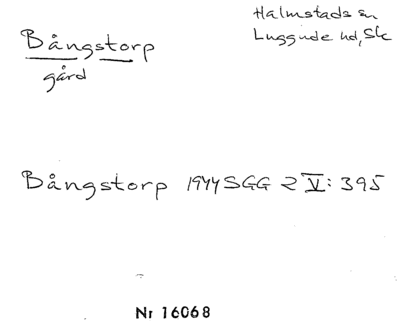 Bångstorp
gård
Halmstads sn
Luggude hd, Sk
Bångstorp 1944 SGG 2 V: 395
Nr 16068